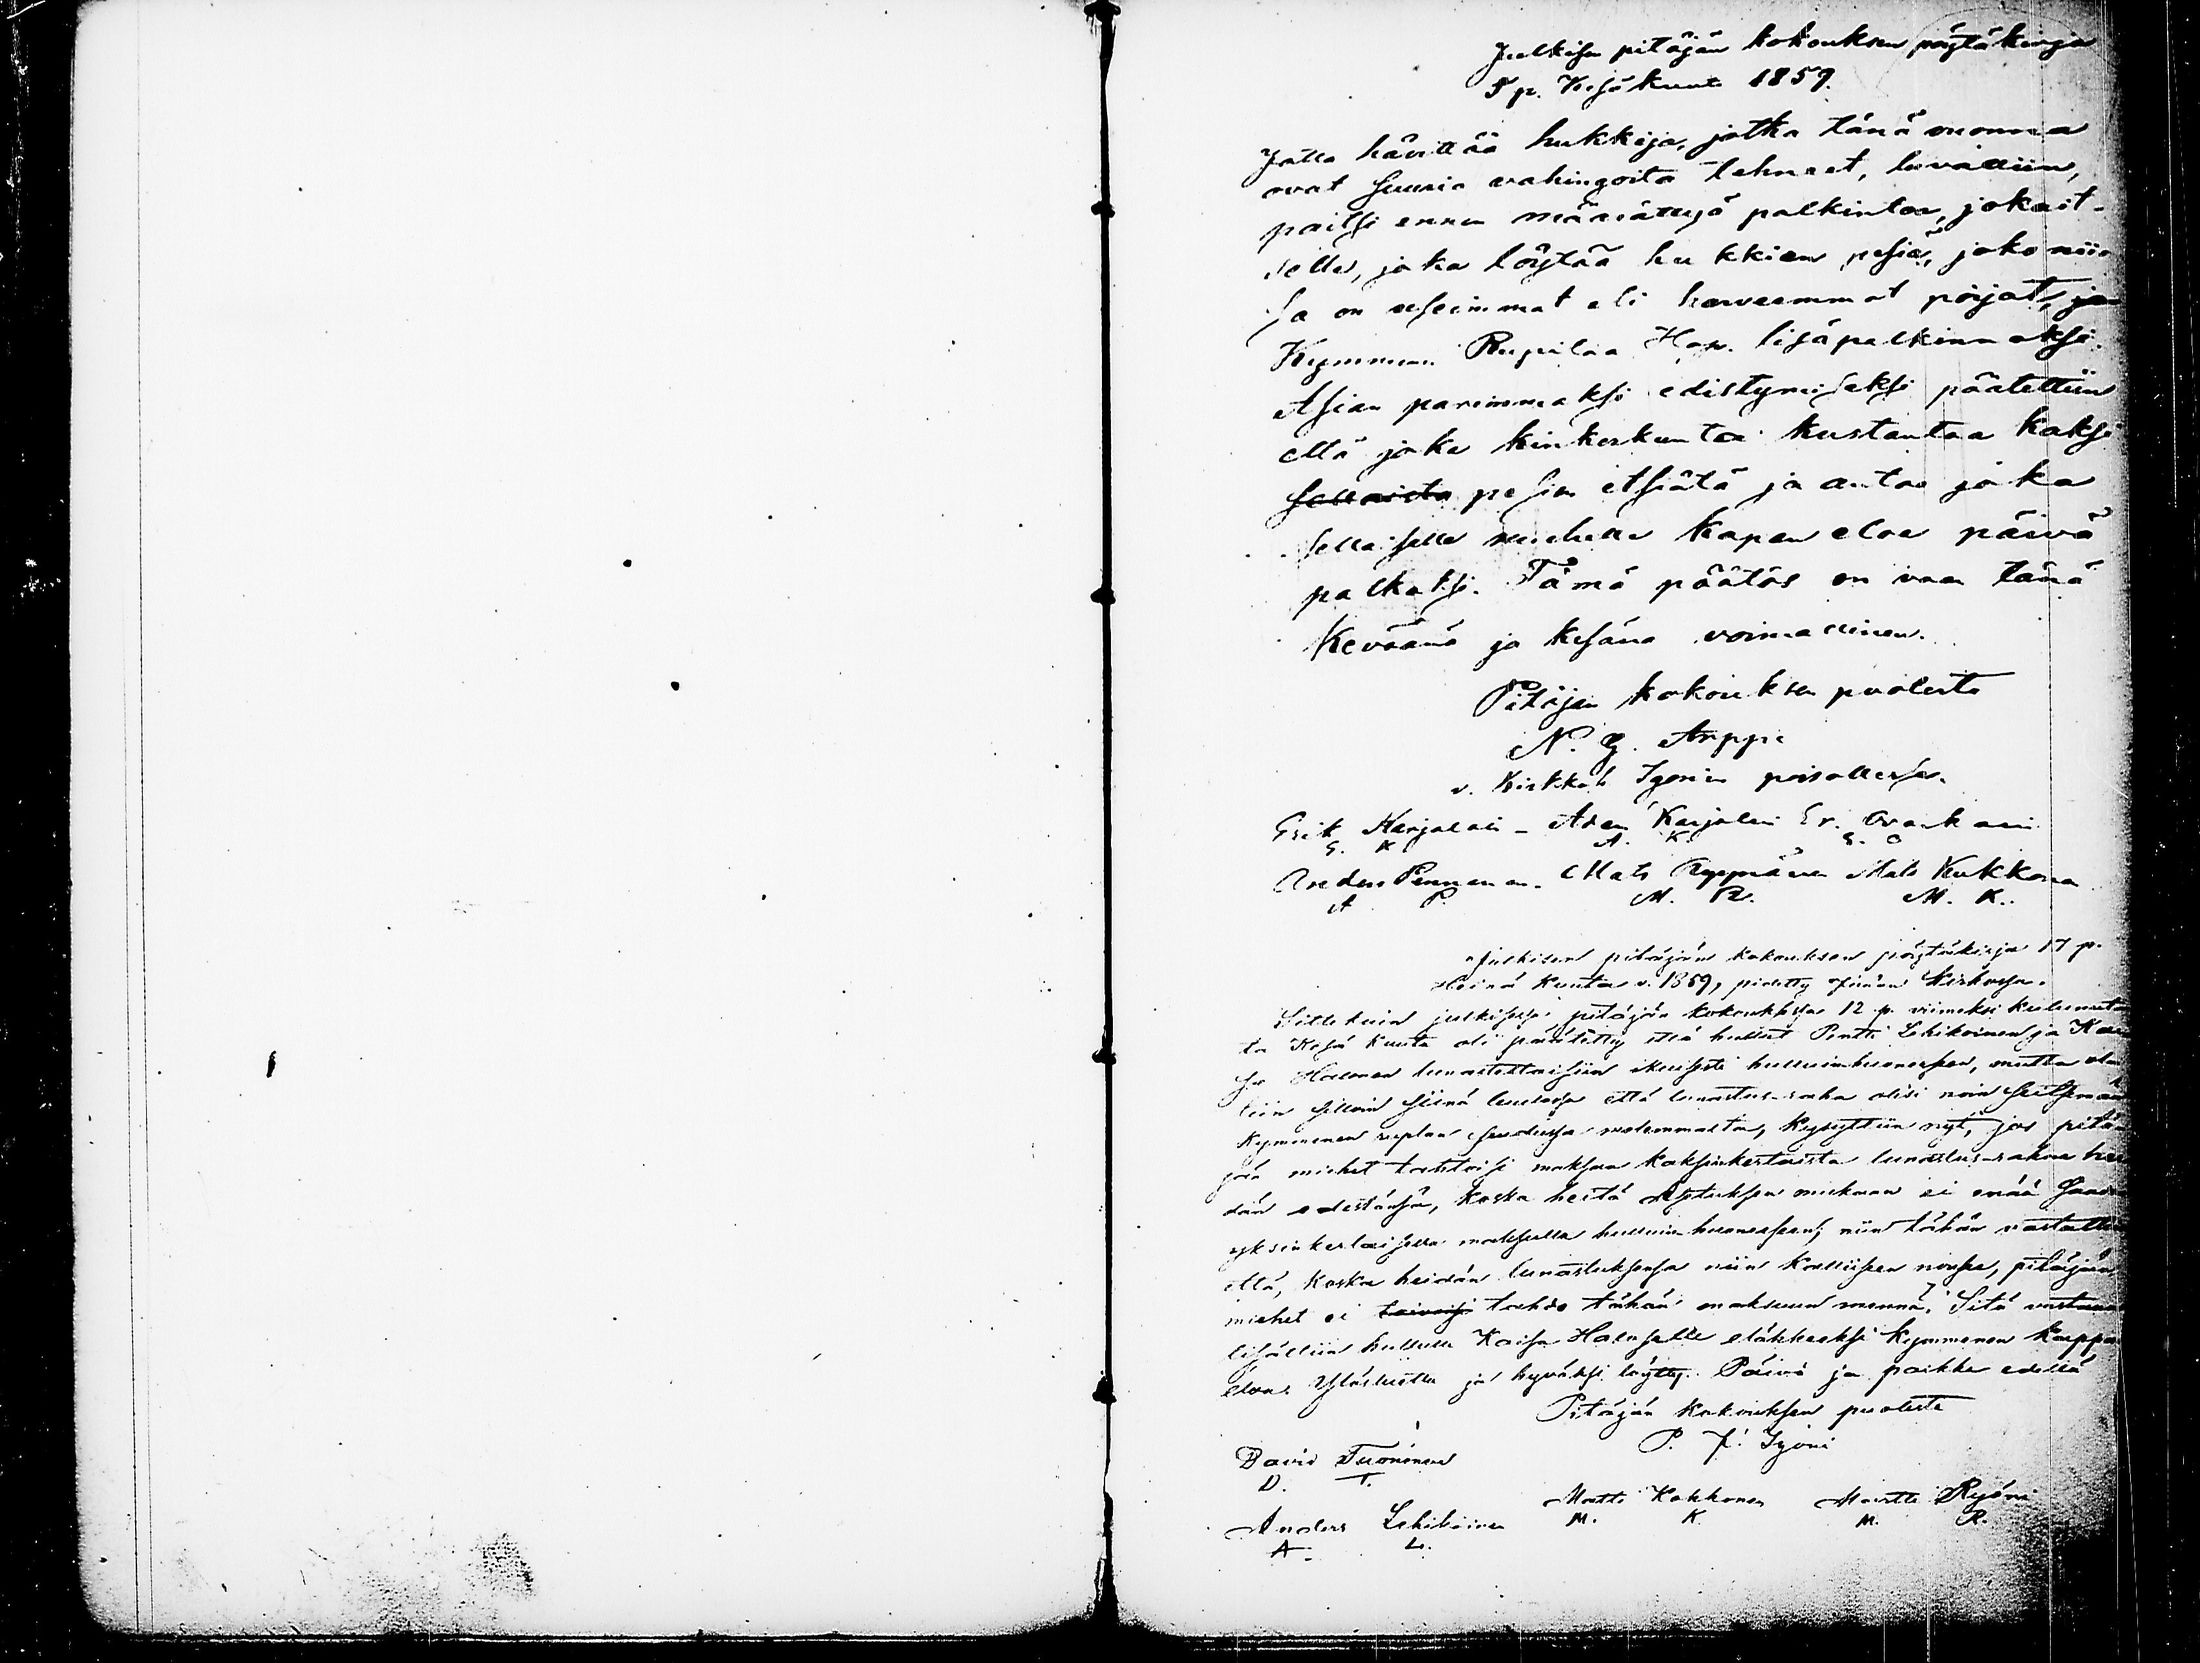 Julkisen pitäjän kokouksen pöytäkirja
5 p. Kesäkuuta 1859.
Jotta hävittää hukkija, jotka tänä vuonna
ovat suuria vahingoita tehneet, luvattiin,
paitsi ennen määrättyä palkintoa, jokait-
selle, joka löytää hukkien pesiä, joko niis
sä on useimmat eli harvemmat pojat,
Kymmenen Ruplaa Hop. lisäpalkinnoksi.
Asian paremmaksi edistymiseksi päätettiin
että joka kinkerkunta kustantaa kaksi
sellaista pesän etsiätä ja antaa joka
sellaiselle miehelle kapan eloa päivä
palkaksi. Tämä päätös on vaan tänä
Keväänä ja kesänä voimallinen.
Pitäjän kokouksen puolesta
N. G. Arppe
v. Kirkkoh Ігоніn poisollessa.
Erik Karjalain - Adam Karjalain Er. Ovaskain
E. K. A. K. E. O
Anders Pennanen. Mats Ryppnäinen Mats Kukkonen
A P. M. R. M. K.
Julkisen pitäjän kokouksen pöytäkirja 17 p.
Heinä kuuta v. 1859, pidetty Kirkossa.
Sitte kuin julkisessa pitäjän kokouksessa 12 p. viimeksi kulunut
ta Kesä kuuta oli päätetty että hullut Pentti Lehikoinen ja Kai
sa Halonen lunastettaisiin ikuisesti hulluinhuoneesen, mutta ol
tiin silloin siinä luulossa että lunastus-raha olisi noin seitsemän
kymmenen ruplan seudussa molemmalta, kysyttiin nyt, jos pitä
jän miehet tahtoisi maksaa kaksinkertaista lunastus-rahaa hei
dän edestänsä, koska heitä asetuksen mukaan ei enää saada
yksinkertaisella maksulla hulluin huoneesen; niin tähän vastattiin
että, koska heidän lunastuksensa niin kalliisen nousee, pitäjän
miehet ei toivoisi tahdo tähän maksuun mennä. Sitä vastaan
lisättiin hullulle Kaisa Haloselle eläkkeeksi kymmenen kappaa
eloa. Ylösluettu ja hyväksi löytty. Päivä ja paikka edellä
Pitäjän kokouksen puolesta
P. J. Igoni
David Turoinen
D. T.
Anders Lehikoinen Matti Kakkonen Martti Ryöni
A. L. M. K. M. R.